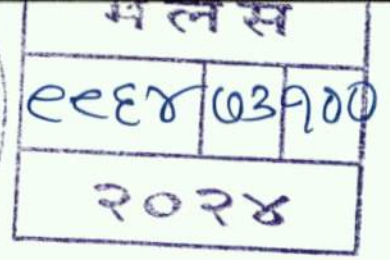 म ल स
९९६४ ७३ १००
२०२४